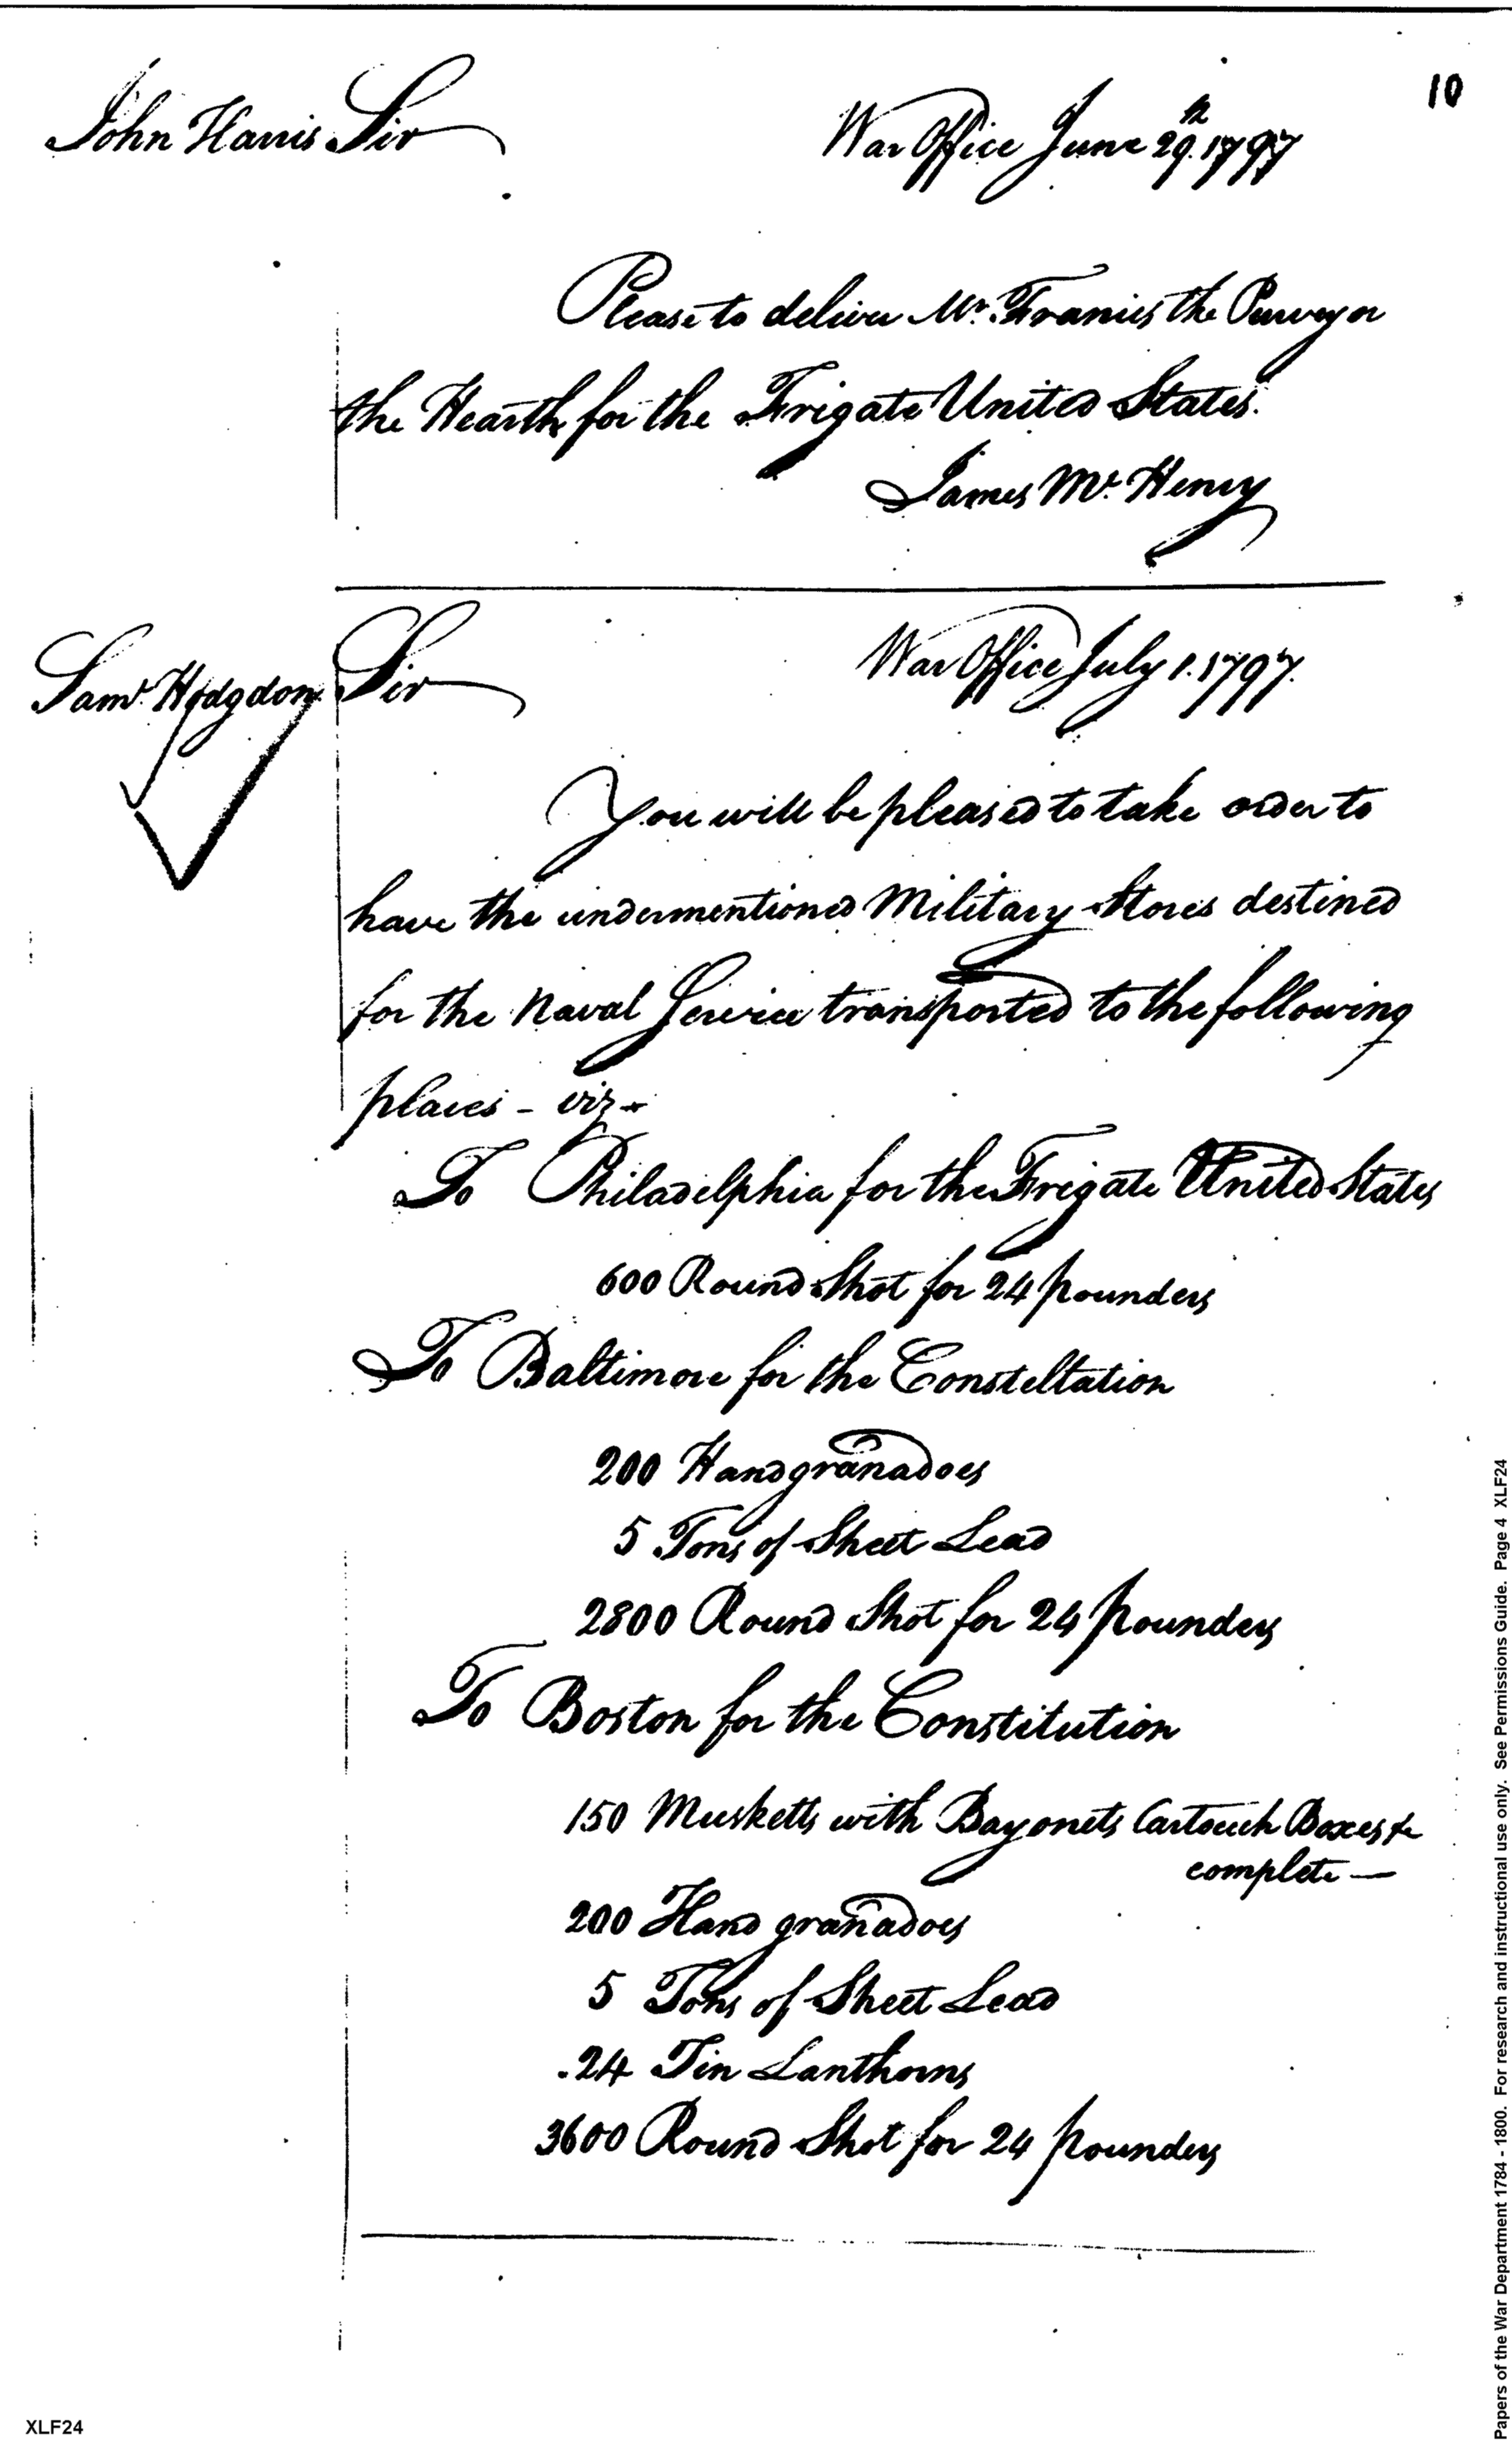 10
John Harris Sir War Office June 29.th 1797
Please to deliver Mr. Francis the Purveyor
the Hearth for the Frigate United States.
James Mc.Henry
Saml. Hodgdon Sir War Office July 1. 1797.
You will be pleased to take order to
have the undermentioned Military Stores destined
for the Naval Service transported to the following
places - viz -
To Philadelphia for the Frigate United States
600 Round Shot for 24 pounders
To Baltimore for the Constellation
200 Handgranadoes
5 Tons of Sheet Lead
2800 Round Shot for 24 pounders
To Boston for the Constitution
150 Musketts with Bayonets Cartouch Boxes &c
complete —
200 Hand granadoes
5 Tons of Sheet Lead
24 Tin Lanthorns
3600 Round Shot for 24 pounders
XLF24
Papers of the War Department 1784 - 1800. For research and instructional use only. See Permissions Guide. Page 4 XLF24